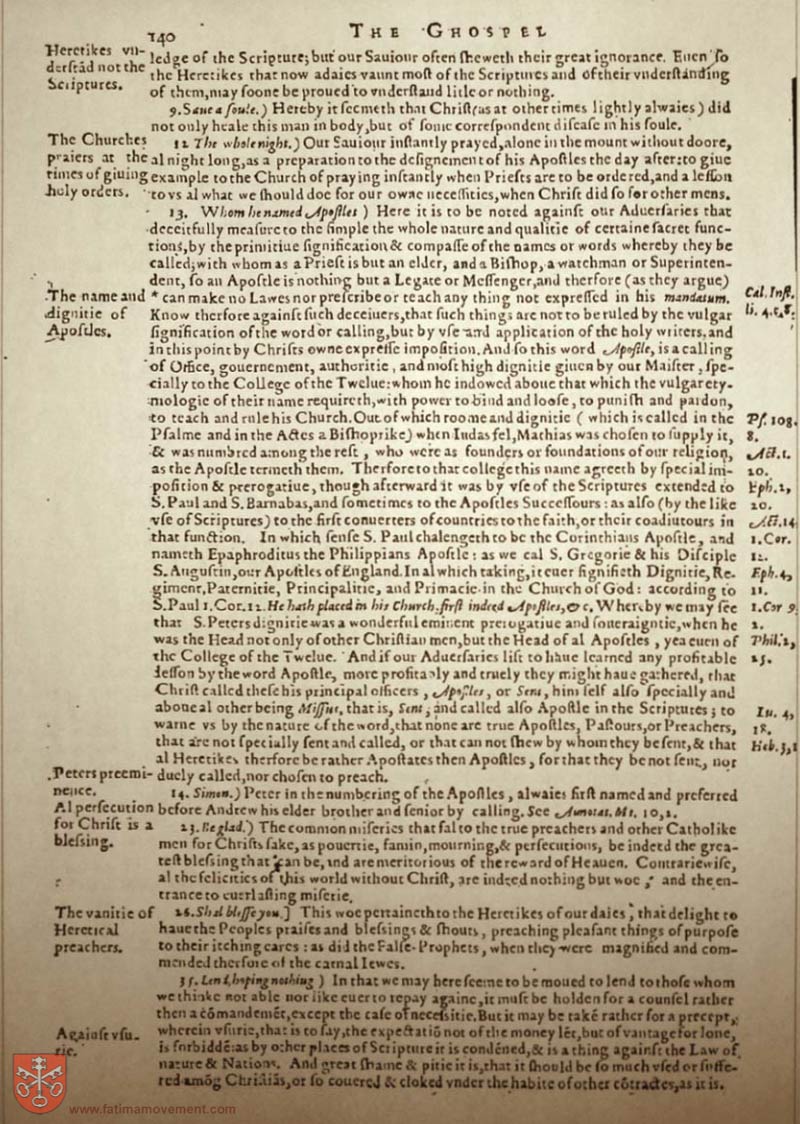 140
THE GHOSPEL
Heretikes vn-
derstãd not the
Scriptures.
ledge of the Scripture; but our Sauiour often sheweth their great ignorance. Euen so
the Heretikes that now adaies vaunt most of the Scriptures and of their vnderstanding
of them, may soone be proued to vnderstand litle or nothing.
9. Saue a soule.) Hereby it seemeth that Christ (as at other times lightly alwaies) did
not only heale this man in body, but of some correspondent disease in his soule.
The Churches
praiers at the
times of giuing
holy orders.
12. The whole night.) Our Sauiour instantly prayed, alone in the mount without doore,
al night long, as a preparation to the designement of his Apostles the day after: to giue
example to the Church of praying instantly when Priests are to be ordered, and a lesson
to vs al what we should doe for our owne necessities, when Christ did so for other mens.
13. Whom he named Apostles) Here it is to be noted against our Aduersaries that
deceitfully measure to the simple the whole nature and qualitie of certaine sacret func-
tions, by the primitiue signification & compasse of the names or words whereby they be
called; with whom as a Priest is but an elder, and a Bishop, a watchman or Superinten-
dent, so an Apostle is nothing but a Legate or Messenger, and therfore (as they argue)
The name and
dignitie of
Apostles.
* can make no Lawes nor prescribe or teach any thing not expressed in his mandatum.
Cal. Inst.
li. 4. c. 8.
Know therfore against such deceiuers, that such things are not to be ruled by the vulgar
signification of the word or calling, but by vse and application of the holy writers, and
in this point by Christs owne expresse imposition. And so this word Apostle, is a calling
of Office, gouernement, authoritie, and most high dignitie giuen by our Maister, spe-
cially to the College of the Twelue: whom he indowed aboue that which the vulgar ety-
mologie of their name requireth, with power to bind and loose, to punish and pardon,
to teach and rule his Church. Out of which roome and dignitie ( which is called in the
Ps. 108.
Psalme and in the Actes a Bishoprike) when Iudas fel, Mathias was chosen to supply it,
8.
& was numbred among the rest, who were as founders or foundations of our religion,
Act. 1.
as the Apostle termeth them. Therfore to that college this name agreeth by special im-
20.
position & prerogatiue, though afterward it was by vse of the Scriptures extended to
Eph. 2,
S. Paul and S. Barnabas, and sometimes to the Apostles Successours: as also (by the like
20.
vse of Scriptures) to the first conuerters of countries to the faith, or their coadiutours in
Act. 14
that function. In which sense S. Paul chalengeth to be the Corinthians Apostle, and
1. Cor.
nameth Epaphroditus the Philippians Apostle: as we cal S. Gregorie & his Disciple
S. Augustin, our Apostles of England. In al which taking, it euer signifieth Dignitie, Re-
Eph. 4,
giment, Paternitie, Principalitie, and Primacie in the Church of God: according to
11.
S. Paul 1. Cor. 12. He hath placed in his Church, first indeed Apostles, &c, Wherby we may see
1. Cor 9
that S. Peters dignitie was a wonderful eminent prerogatiue and soueraigntie, when he
2.
was the Head not only of other Christian men, but the Head of al Apostles, yea euen of
Phil. 2,
the College of the Twelue. And if our Aduersaries list to haue learned any profitable
25.
lesson by the word Apostle, more profitably and truely they might haue gathered, that
Christ called these his principal officers, Apostles, or Sent, him self also specially and
aboue al other being Missus, that is, Sent, and called also Apostle in the Scriptures; to
Io. 4,
warne vs by the nature of the word, that none are true Apostles, Pastours, or Preachers,
that are not specially sent and called, or that can not shew by whom they be sent, & that
Heb. 3, 1
al Heretikes therfore be rather Apostates then Apostles, for that they be not sent, nor
Peters preemi-
nence.
duely called, nor chosen to preach.
14. Simon.) Peter in the numbering of the Apostles, alwaies first named and preferred
Al persecution
for Christ is a
blessing.
before Andrew his elder brother and senior by calling. See Annotat. Mt. 10, 2.
23. Be glad.) The common miseries that fal to the true preachers and other Catholike
men for Christs sake, as pouertie, famin, mourning, & persecutions, be indeed the grea-
test blessing that can be, and are meritorious of the reward of Heauen. Contrariewise,
al the felicities of this world without Christ, are indeed nothing but woe, and the en-
trance to euerlasting miserie.
The vanitie of
Heretical
preachers.
26. Shal blesse you.] This woe pertaineth to the Heretikes of our daies, that delight to
haue the Peoples praises and blessings & shouts, preaching pleasant things of purpose
to their itching eares: as did the False-Prophets, when they were magnified and com-
mended therfore of the carnal Iewes.
35. Lend, hoping nothing) In that we may here seeme to be moued to lend to those whom
we thinke not able nor like euer to repay againe, it must be holden for a counsel rather
then a cõmandemẽt, except the case of necessitie. But it may be takẽ rather for a precept,
Against vsu-
rie.
wherein vsurie, that is to say, the expectatiõ not of the money lẽt, but of vantage for lone,
is forbiddẽ: as by other places of Scripture it is condẽned, & is a thing against the Law of
nature & Nations. And great shame & pitie it is, that it should be so much vsed or suffe-
red amõg Christiãs, or so couered & cloked vnder the habite of other cõtractes, as it is.
www.fatimamovement.com